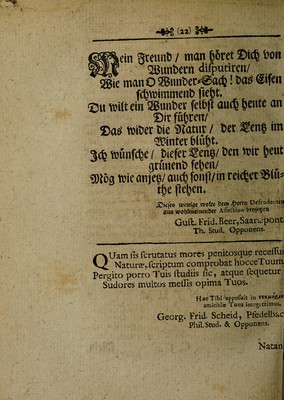 (22)
Mein Freund / man höret Dich von
Wundern disputiren /
Wie man O Wunder-Sach! das Eisen
schwimmend sieht.
Du wilt ein Wunder selbst auch heute an
Dir führen /
Das wider die Natur / der Lentz im
Winter blüht.
Ich wünsche / dieser Lentz / den wir heut
grünend sehen /
Mög wie anjetz / auch sonst / in reicher Blü-
the stehen.
Dieses wenige wolte dem Herrn Defendenten
aus wohlmeinender Affection beyfügen
Gust. Frid. Beer, Saaræpont.
Th. Stud. Opponens.
QUam sis scrutatus mores penitosque recessus
Naturæ, scriptum comprobat hocce Tuum
Pergito porro Tuis studiis sic, atque sequetur
Sudores multos messis opima Tuos.
Hæc Tibi apposuit in
amicitiæ Tuus integerrimus.
Georg. Frid. Scheid, Pfedelbac.
Phil. Stud. & Opponens.
Natan